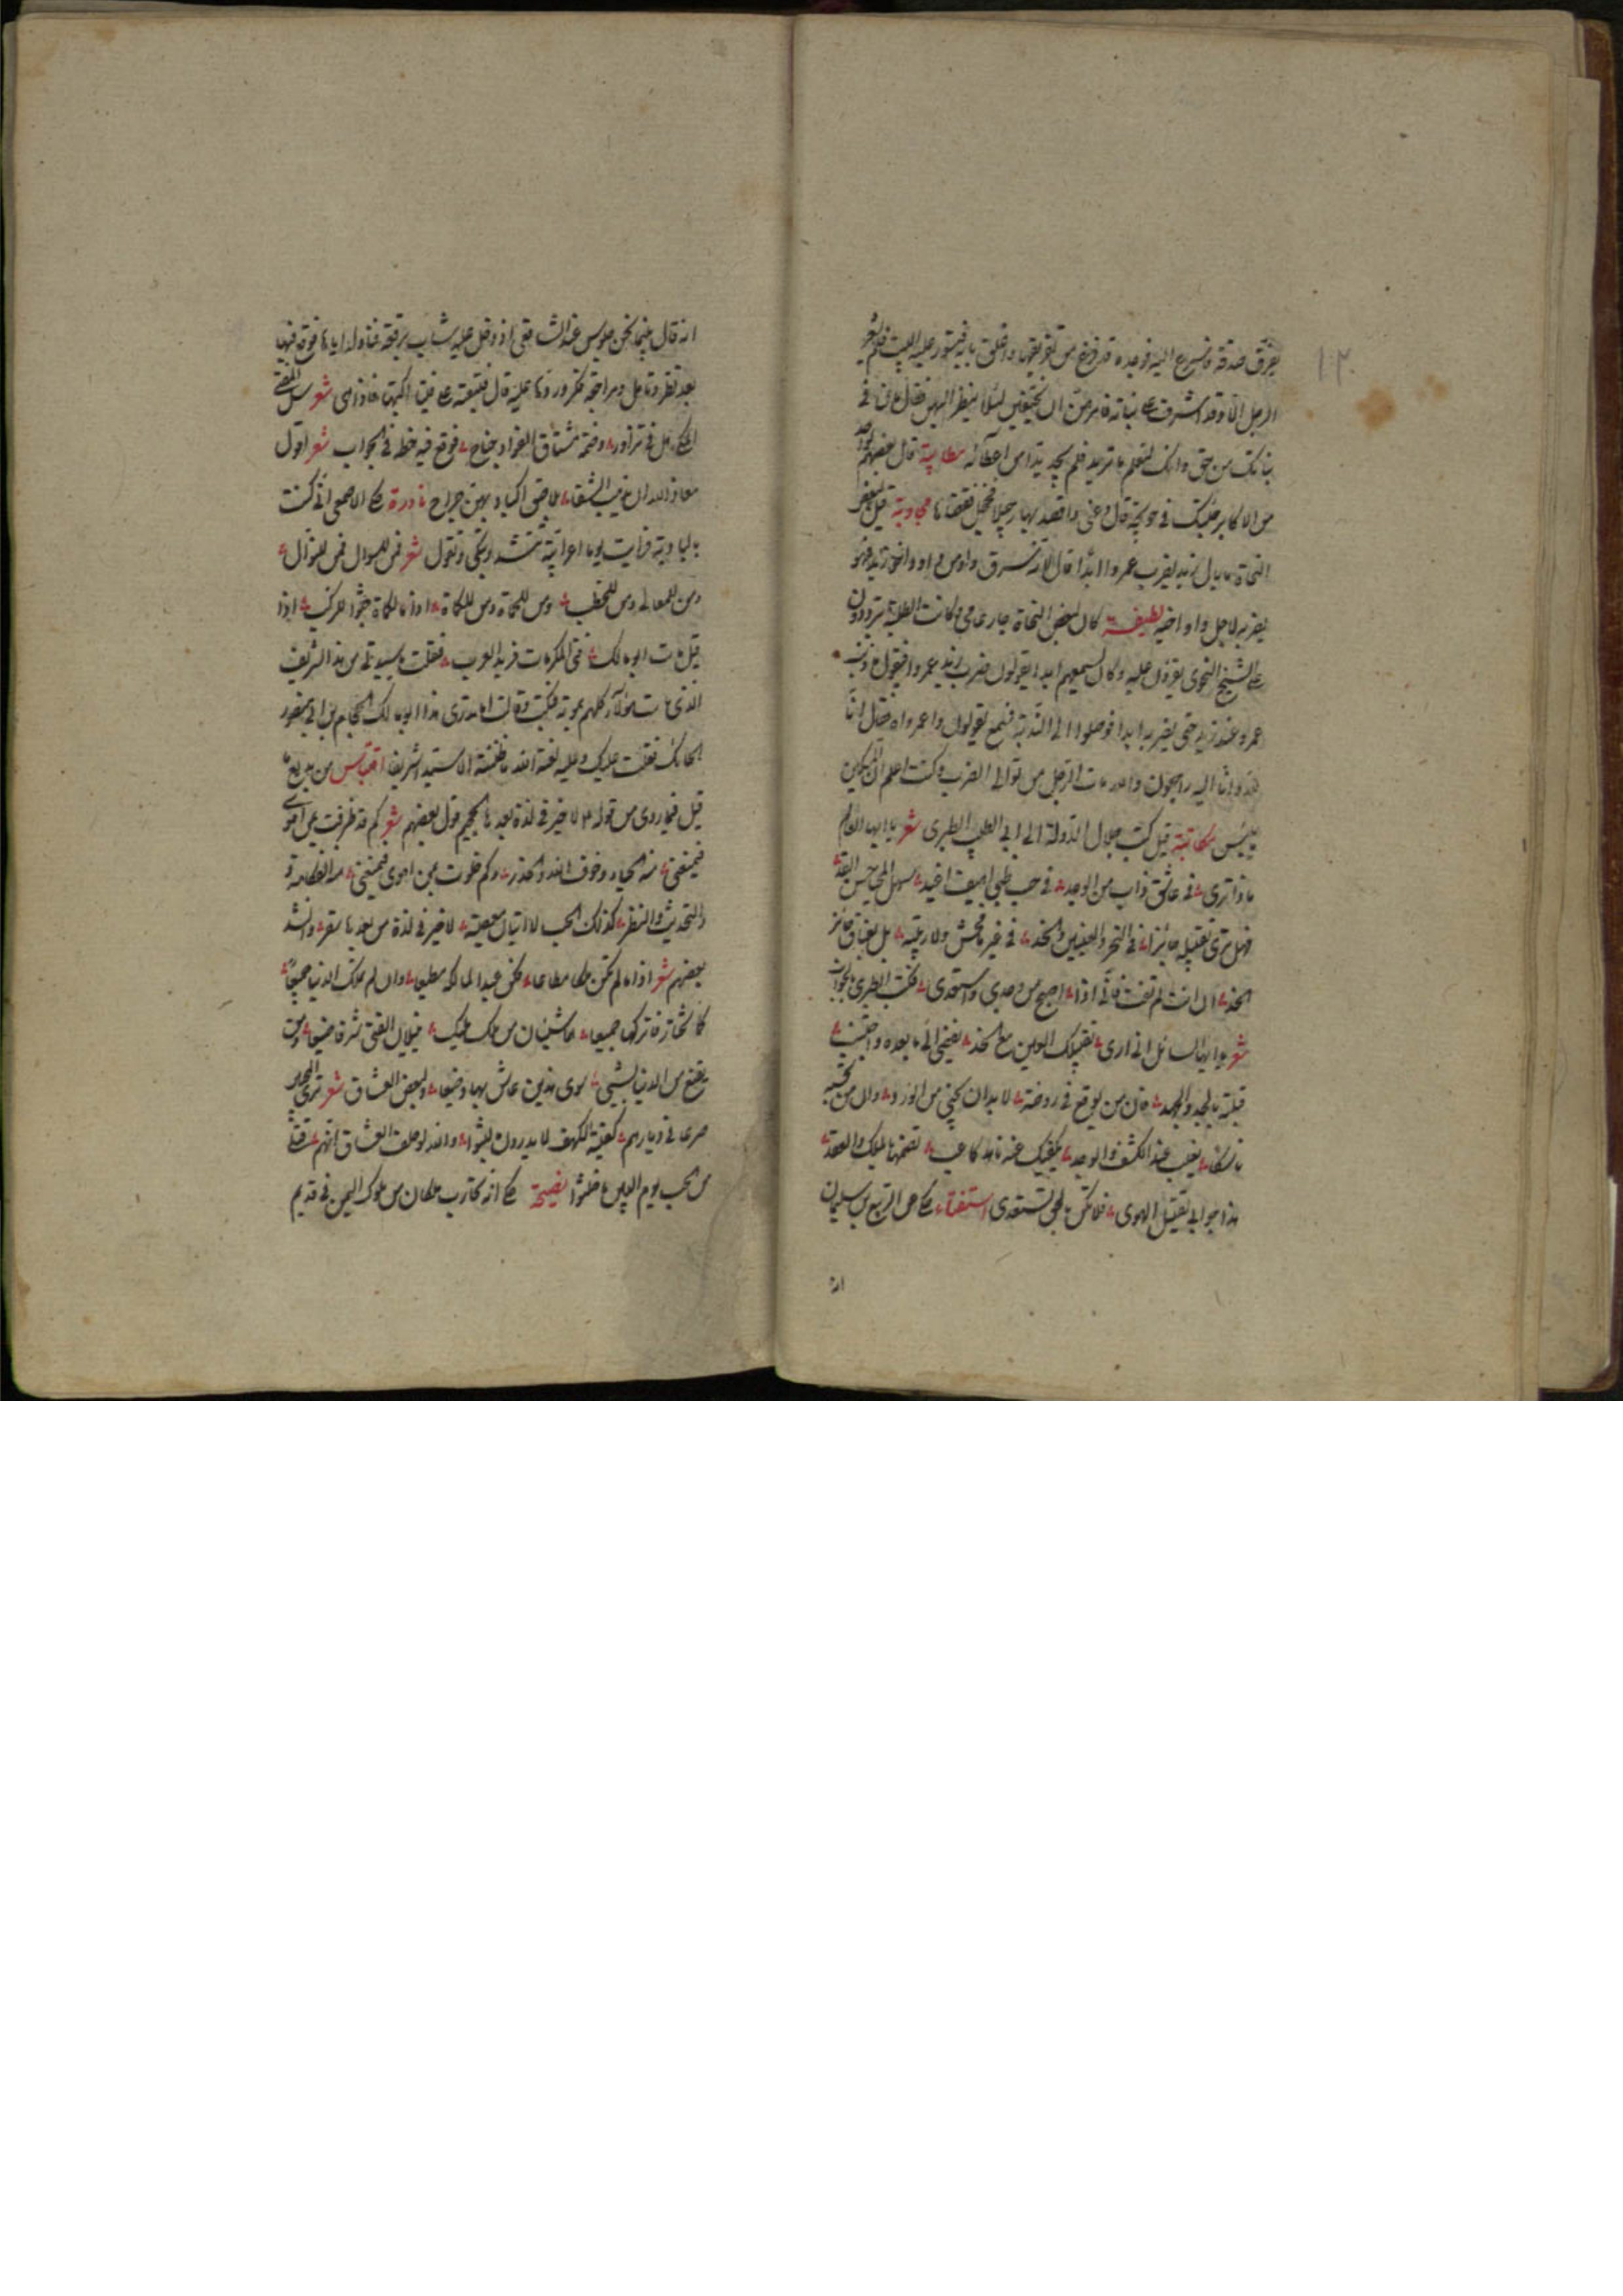 يفرق صدقة فاسرع اليه فوجده قد فرغ من تفريقها واغلق بابه فتسور عليه البيت فلم يشعر
الرجل الا وقد اشرف على بناته فامرهن ان يختفين لئلا ينظر اليهن فقال ما لنا في
بناتك من حق وانك لتعلم ما نريد فلم يجد بدا من اعطائه مطايبة قال بعضهم لواحد
من الاكابر جئتك في حويجة قال دعني واقصد بها رجيلا فخجل فقضاها مجاوبة قيل لبعض
النحاة ما بال زيد يضرب عمروا ابدا قال لانه سرق واوا من داود واخذ زيد فهو
يضربه لاجل واو اخيه لطيفة كان لبعض النحاة جار عامي وكانت الطلبة يترددون
على الشيخ النحوي يقرؤن عليه وكان يسمعهم ابدا يقولون ضرب زيد عمروا فيقول ما ذنب
عمرو عند زيد حتى يضربه ابدا فوصلوا الى الندبة فسمع يقولون واعمرواه فقال انا
لله وانا اليه راجعون والله مات الرجل من توالي الضرب وكنت اعلم ان المسكين
مكاتبة قيل كتب جلال الدولة الى ابي الطيب الطبري شعر يا ايها العالم
ماذا ترى في عاشق ذاب من الوجد في حب ظبي اهيف اغيد سهل المحيا حسن القد
فهل ترى تقبيله جائزا في النحر والعينين والخد في غير ما فحش ولا ريبة بل بعناق جائز
الحد ان انت لم تفت فاني اذا اصيح من وجدي واستعدي فكتب الطبري الجواب
شعر يا ايها السائل اني ارى تقبيلك العين مع الخد يفضي الى ما بعده فاجتنب
قبلته بالجد والجهد فان من يرتع في روضة لا بد ان يجني من الورد وان من تحسبه
ناسكا يغيب عند الكشف والوجد يغنيك عنه ناهد كاعب تضمها بالملك والعقد
هذا جوابي لقتيل الهوى فلا تكن بالحق تستعدي استفتاء حكي عن الربيع بن سليمان
انه
انه قال بينما نحن جلوس عند الشافعي اذ دخل عليه شاب برقعة فناوله اياها فوقع فيها
بعد نظر وتامل شعر سل المفتي
المكي هل في تزاور وضمة مشتاق الفؤاد جناح فوقع فيه خطه في الجواب شعر اقول
معاذ الله ان يذهب التقى تلاصق اكباد بهن جراح نادرة حكى الاصمعي اني كنت
بالبادية فرايت يوما اعرابية تنشد وتبكي وتقول شعر فمن للسؤال فمن للنوال
ومن للمعالي ومن للخطب ومن للحماة ومن للكماة اذا ما الكماة جثوا للركب اذا
قيل مات ابو مالك فتى المكرمات فريد العرب فقلت يا سيدتي من هذا الشريف
الذي مات هؤلاء كلهم بموته فبكت وقالت اما تدري هذا ابو مالك الحجام بن ابي منصور
الحائك فقلت عليك وعليه لعنة الله ما ظننته الا سيدا شريفا اقتباس من بديع ما
قيل فيما روي من قوله لا خير في لذة بعدها الجحيم قول بعضهم شعر كم قد ظفرت بمن اهوى
فيمنعني منه الحياء وخوف الله والحذر وكم خلوت بمن اهوى فيمنعني منه الفكاهة
والتحديث والنظر كذلك الحب لا اتيان معصية لا خير في لذة من بعدها سقر وانشد
بعضهم شعر اذا ما لم تكن ملكا مطاعا فكن عبدا لمالكه مطيعا وان لم تملك الدنيا جميعا
كما تختار فاتركها جميعا هما شيئان من ملك ونسك ينيلان الفتى شرفا رفيعا ومن
يقنع من الدنيا بشيء سوى هذين عاش بها وضيعا ولبعض العشاق شعر ترى المحبين
صرعى في ديارهم كفتية الكهف لا يدرون كم لبثوا والله لو حلف العشاق انهم قتلى
من الحب يوم البين ما حنثوا نصيحة حكي انه تحارب ملكان من ملوك اليمن في قديم